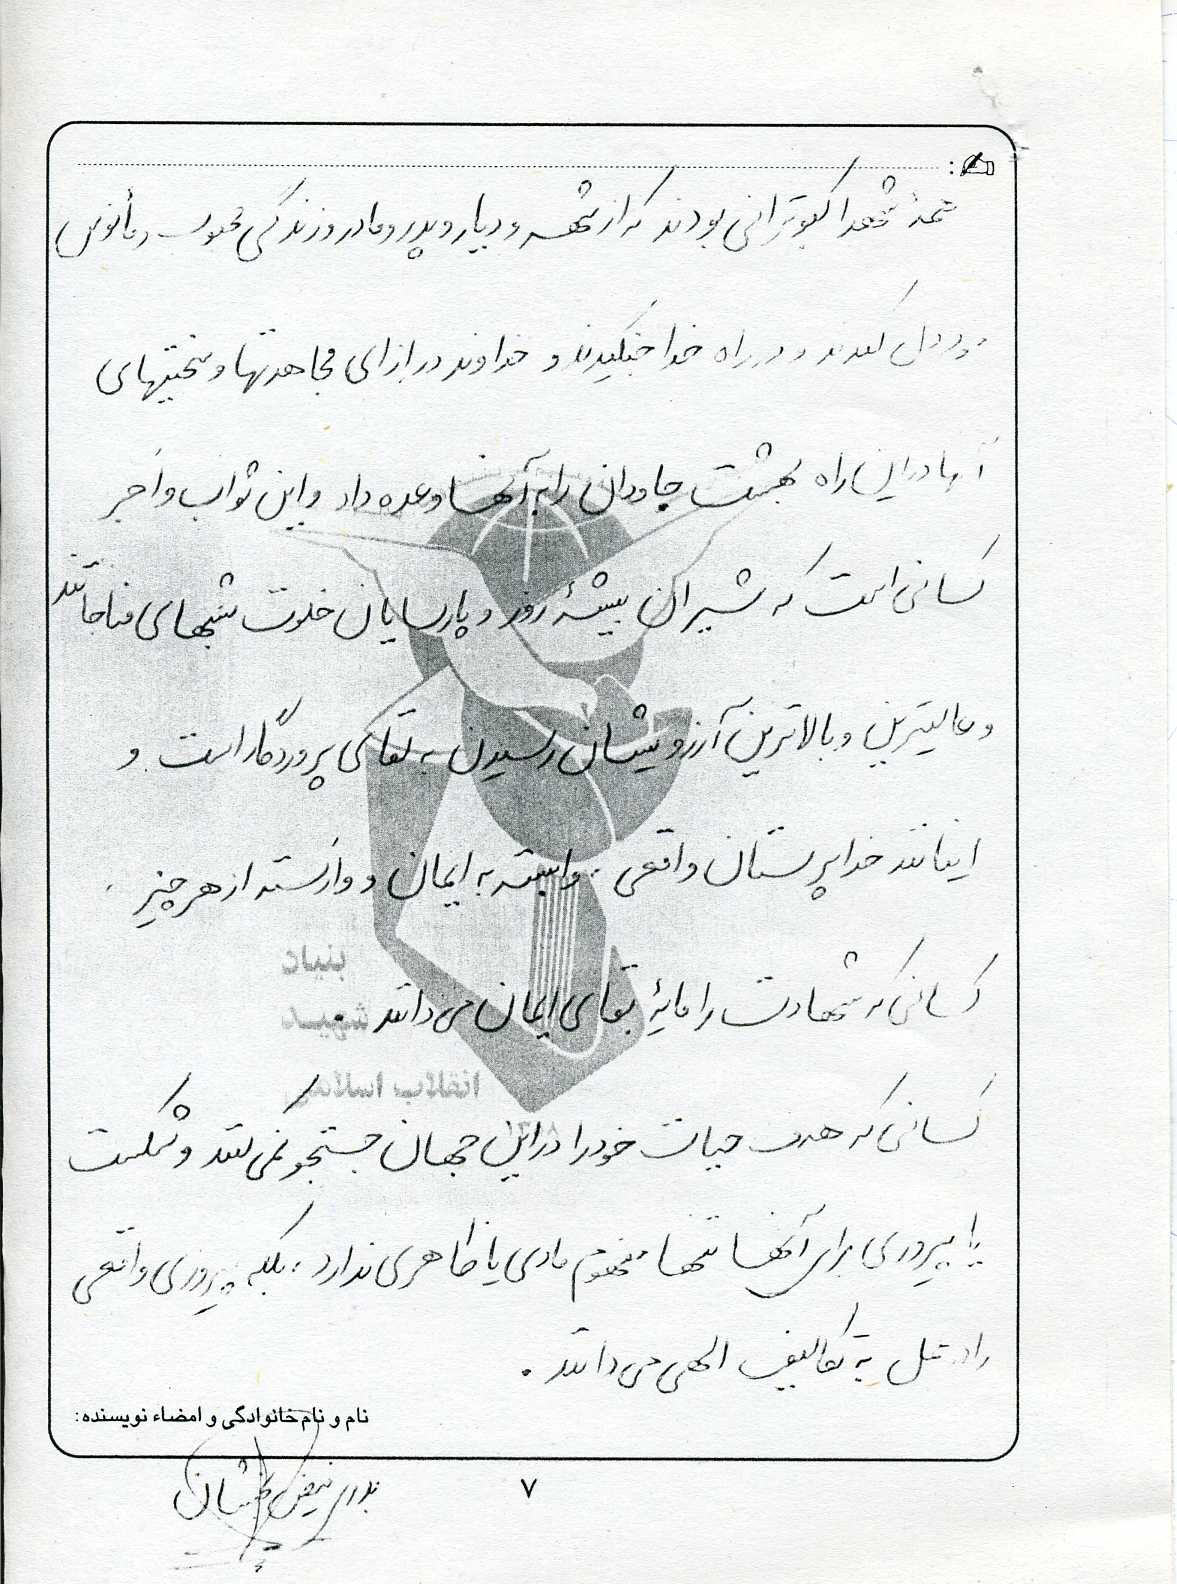 همهٔ شهدا کبوترانی بودند که از شهر و دیار و پدر و مادر و زندگی محبوب و مأنوس
خود دل کندند و در راه خدا جنگیدند و خداوند در ازای مجاهدتها و سختیهای
آنها در این راه بهشت جاودان را به آنها وعده داد و این ثواب و اجر
کسانی است که شیران بیشهٔ روز و پارسایان خلوت شبهای مناجاتند
و عالیترین و بالاترین آرزویشان رسیدن به لقای پروردگار است و
اینانند خداپرستان واقعی، وابسته به ایمان و وارسته از هر چیز.
کسانی که شهادت را مایهٔ بقای ایمان می دانند.
کسانی که هدف حیات خود را در این جهان جستجو نمی کنند و شکست
یا پیروزی برای آنها تنها مفهوم مادی یا ظاهری ندارد، بلکه پیروزی واقعی
را در عمل به تکالیف الهی می دانند.
نام و نام خانوادگی و امضاء نویسنده:
۷
بنیاد
شهید
انقلاب اسلامی